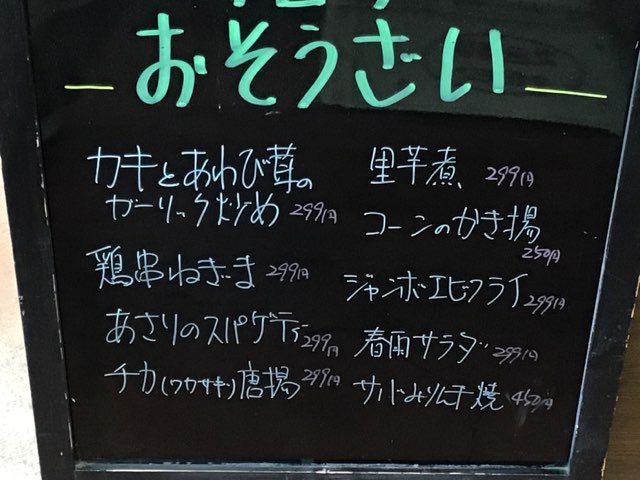 おそうざい
カキとあわび茸の
ガーリック炒め 299円
鶏串ねぎま 299円
あさりのスパゲティ 299円
チカ(ワカサギ)唐揚 299円
里芋煮 299円
コーンのかき揚
250円
ジャンボエビフライ 299円
春雨サラダ 299円
サバみりん干焼 450円